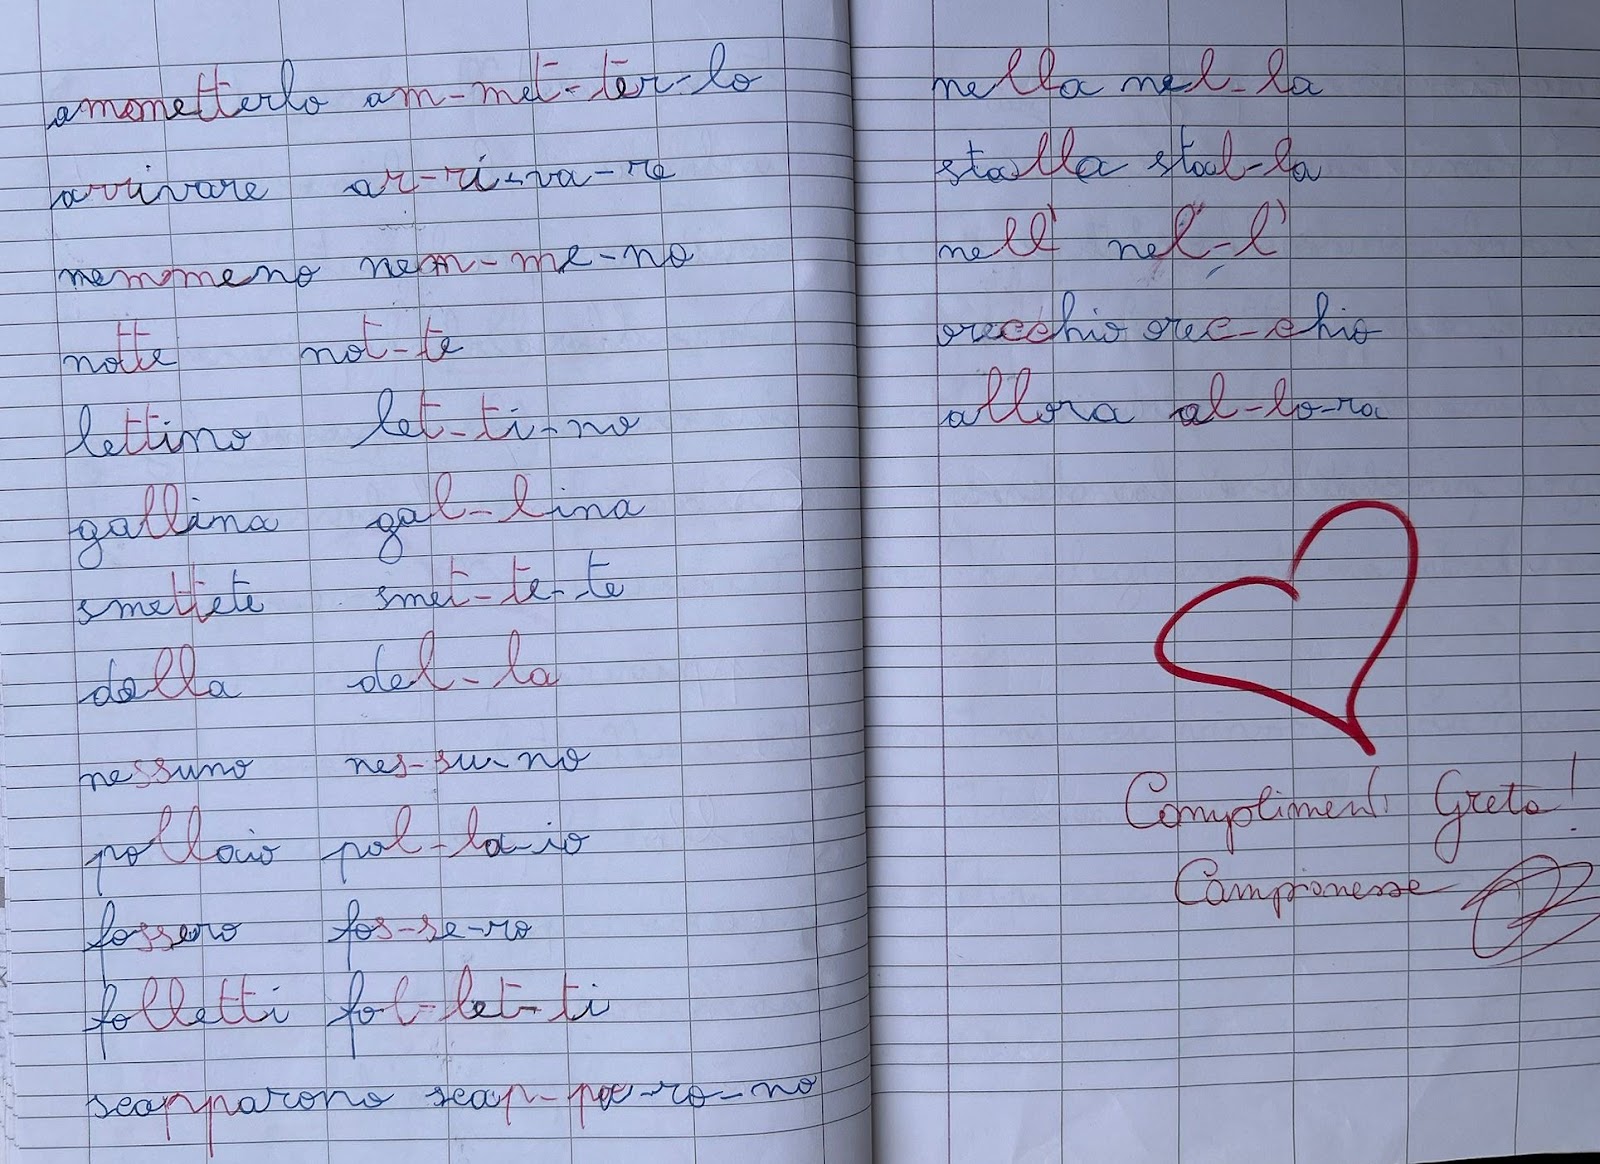 ammetterlo am-met-ter-lo
arrivare ar-ri-va-re
nemmeno nem-me-no
notte not-te
lettino let-ti-no
gallina gal-lina
smettete smet-te-te
della del-la
nessuno nes-su-no
pollaio pol-la-io
fossero fos-se-ro
folletti fol-let-ti
scapparono scap-pa-ro-no
nella nel-la
stalla stal-la
nell' nel-l'
orecchio orec-chio
allora al-lo-ra
Complimenti Greta!
Campionessa